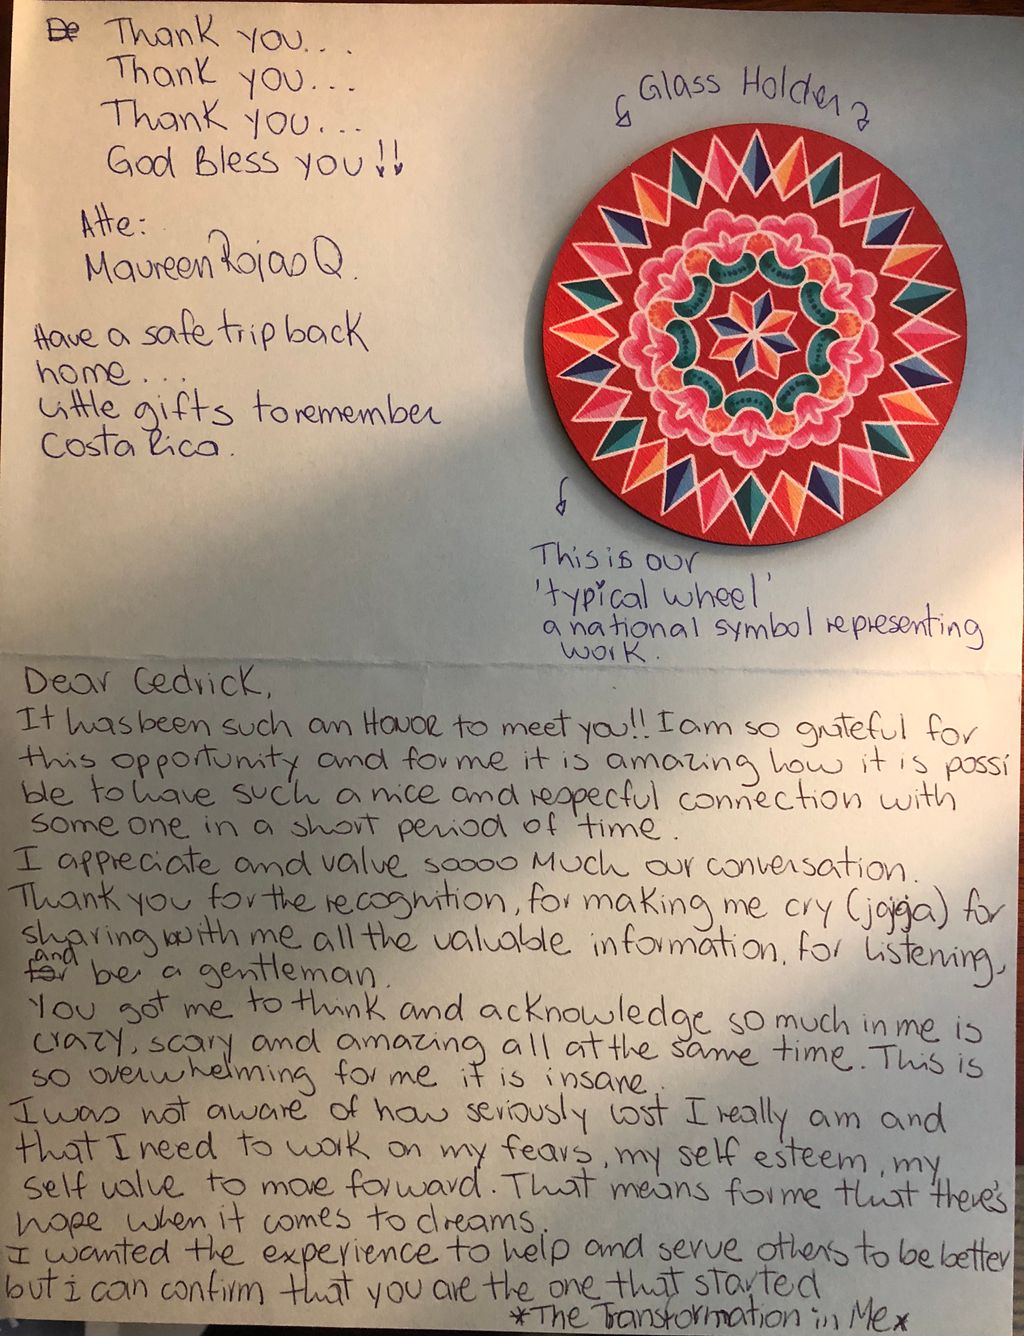 Thank you...
Thank you...
Thank you...
God Bless you!!
Atte:
Maureen Rojas Q.
Have a safe trip back
home...
Little gifts to remember
Costa Rica.
Glass Holder
This is our
'typical wheel'
a national symbol representing
work.
Dear Cedrick,
It has been such an HONOR to meet you!! I am so grateful for
this opportunity and for me it is amazing how it is possi
ble to have such a nice and respecful connection with
some one in a short period of time.
I appreciate and value soooo Much our conversation.
Thank you for the recognition, for making me cry (jajaja) for
sharing with me all the valuable information, for listening,
and be a gentleman.
You got me to think and acknowledge so much in me is
crazy, scary and amazing all at the same time. This is
so overwhelming for me it is insane.
I was not aware of how seriously lost I really am and
that I need to work on my fears, my self esteem, my
self value to move forward. That means for me that there's
hope when it comes to dreams.
I wanted the experience to help and serve others to be better
but i can confirm that you are the one that started
*The Transformation in Me*